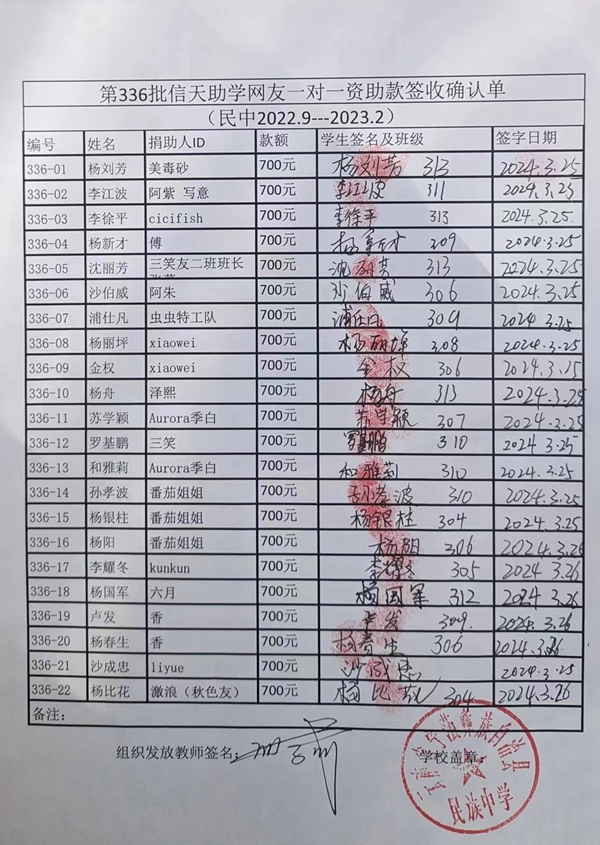 第336批信天助学网友一对一资助款签收确认单
（民中2022.9---2023.2）
编号 姓名 捐助人ID 款额 学生签名及班级 签字日期
336-01 杨刘芳 美毒砂 700元 杨刘芳 313 2024.3.25
336-02 李江波 阿紫 写意 700元 李江波 311 2024.3.25
336-03 李徐平 cicifish 700元 李徐平 313 2024.3.25
336-04 杨新才 傅 700元 杨新才 209 2024.3.25
336-05 沈丽芳 三笑友二班班长 700元 沈丽芳 313 2024.3.25
336-06 沙伯威 阿朱 700元 沙伯威 306 2024.3.25
336-07 浦仕凡 虫虫特工队 700元 浦仕凡 309 2024.3.25
336-08 杨丽坪 xiaowei 700元 杨丽坪 308 2024.3.25
336-09 金权 xiaowei 700元 金权 306 2024.3.25
336-10 杨舟 泽熙 700元 杨舟 313 2024.3.25
336-11 苏学颖 Aurora季白 700元 苏学颖 307 2024.3.25
336-12 罗基鹏 三笑 700元 罗基鹏 310 2024.3.25
336-13 和雅莉 Aurora季白 700元 和雅莉 310 2024.3.25
336-14 孙孝波 番茄姐姐 700元 孙孝波 310 2024.3.25
336-15 杨银柱 番茄姐姐 700元 杨银柱 304 2024.3.25
336-16 杨阳 番茄姐姐 700元 杨阳 306 2024.3.26
336-17 李耀冬 kunkun 700元 李耀冬 305 2024.3.26
336-18 杨国军 六月 700元 杨国军 312 2024.3.26
336-19 卢发 香 700元 卢发 309 2024.3.26
336-20 杨春生 香 700元 杨春生 306 2024.3.26
336-21 沙成忠 liyue 700元 沙成忠 2024.3.25
336-22 杨比花 激浪（秋色友） 700元 杨比花 304 2024.3.26
备注：
组织发放教师签名：
学校盖章：
民族中学